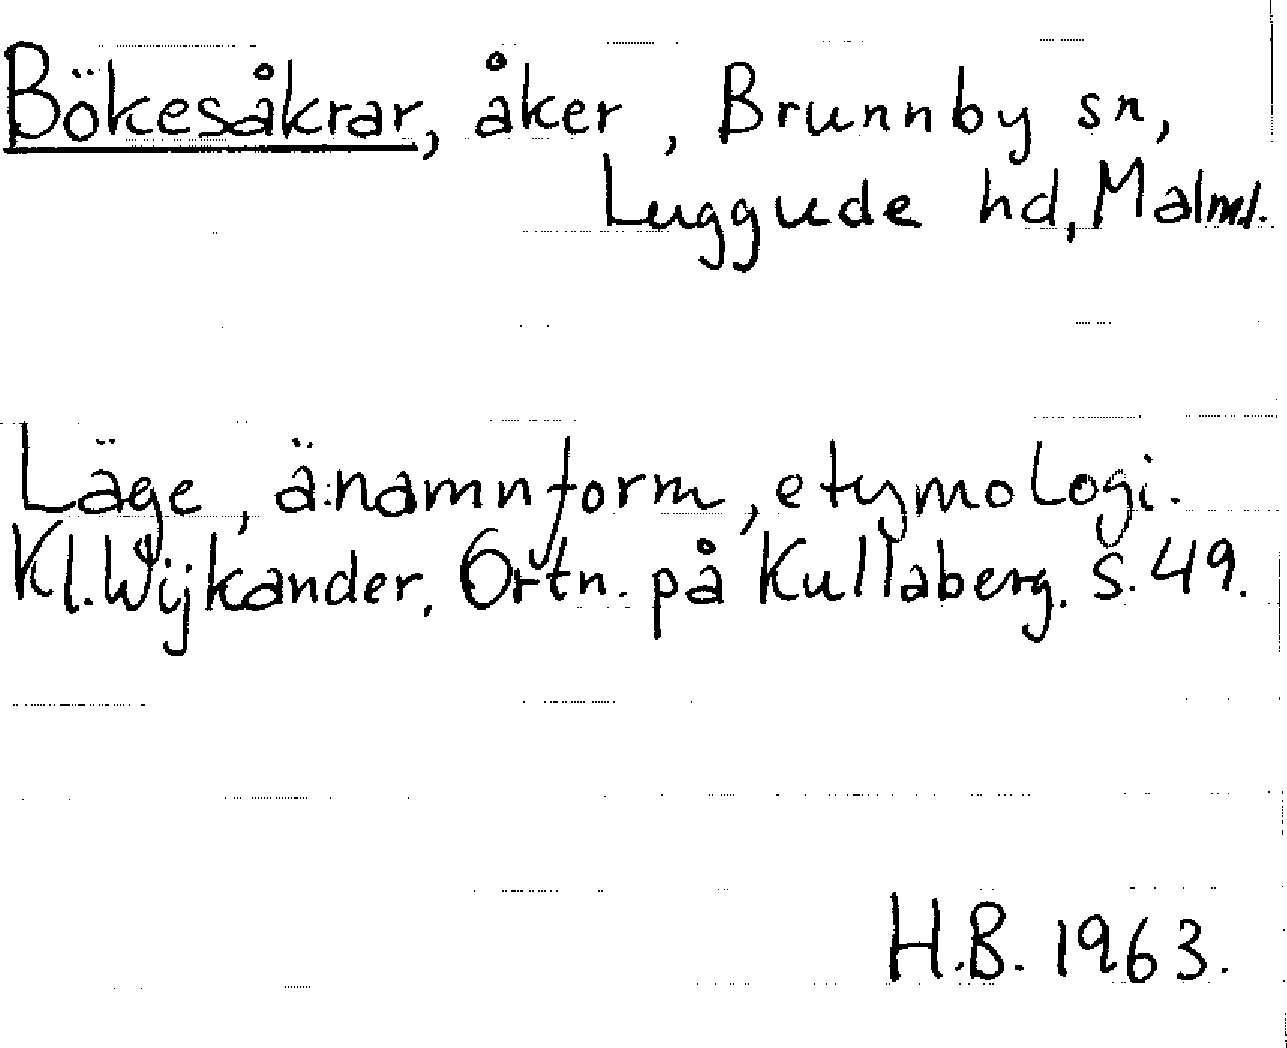 Bökesåkrar, åker, Brunnby sn,
Luggude hd, Malml.
Läge, ä. namnform, etymologi.
Kl. Wijkander, Ortn. på Kullaberg. S. 49.
H.B. 1963.